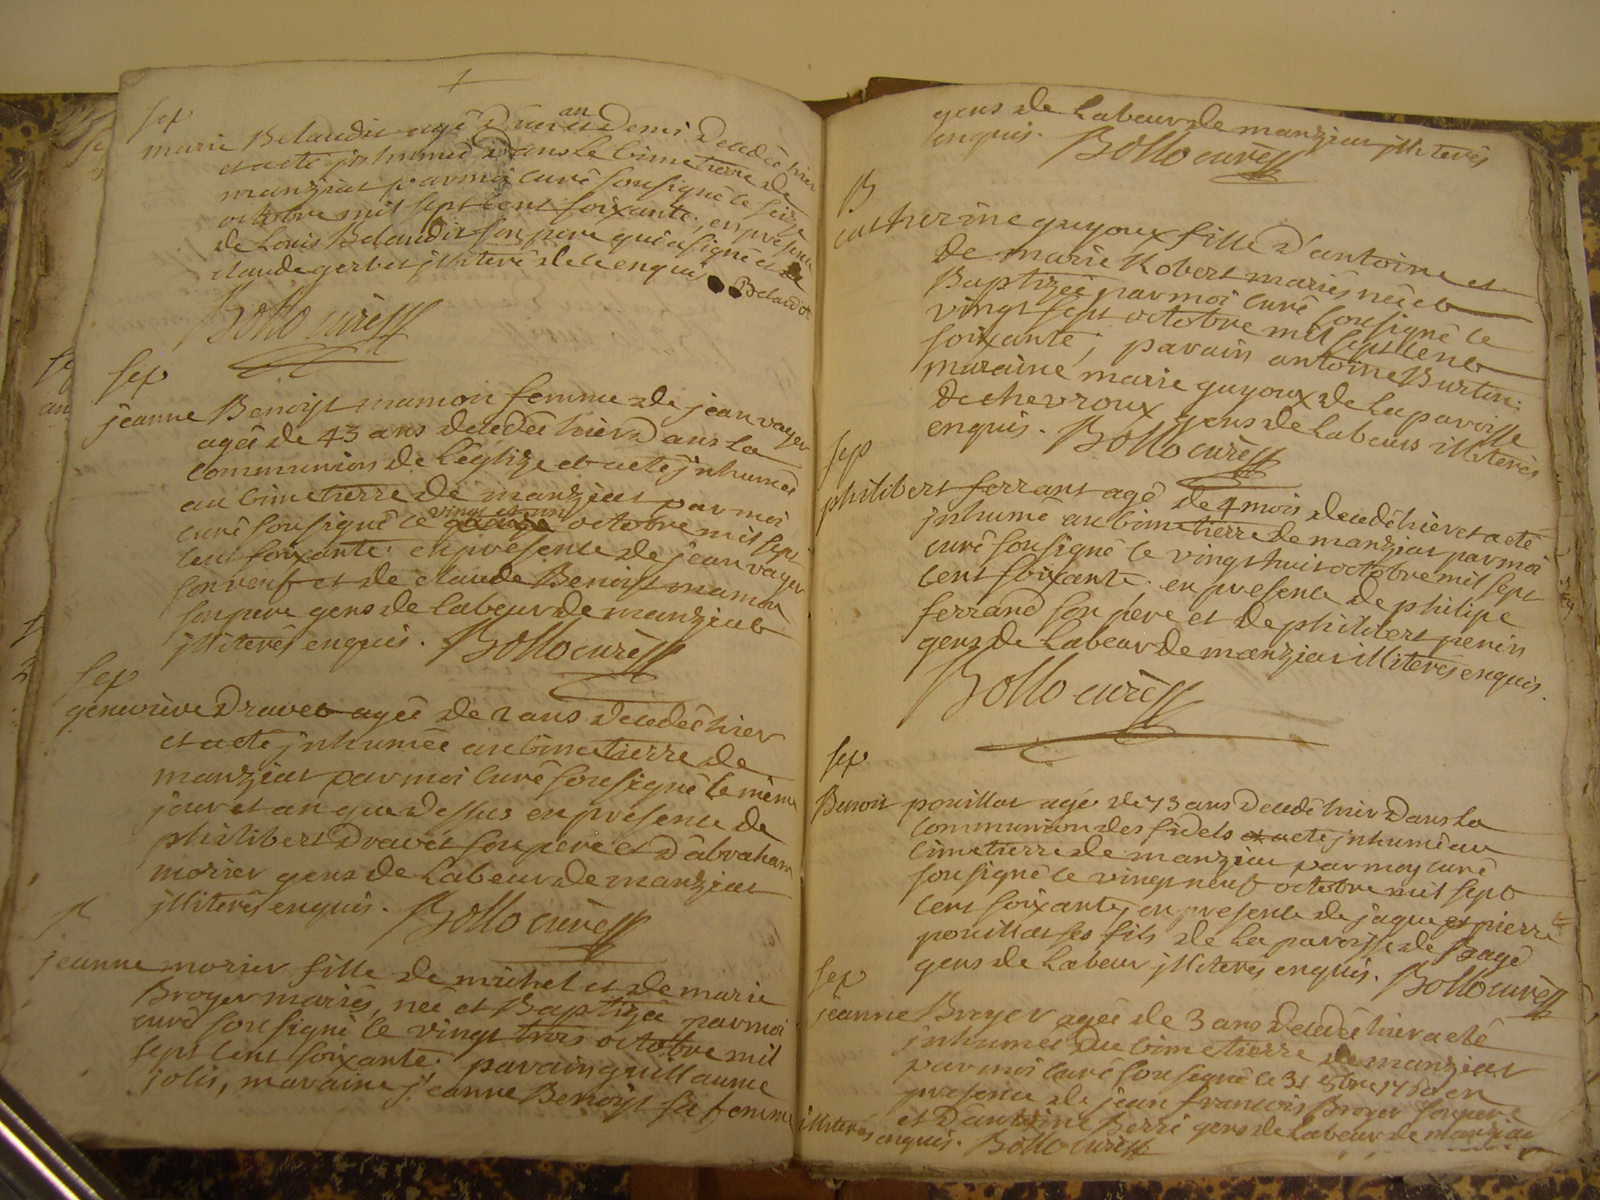 sep
marie Belaudit agé d'un an et Demi Decedée hier
et a eté jnhumée dans le Cimetierre de
manziat par moi curé sousigné le seize
octobre mil sept cent soixante, en présence
de Louis Belaudit son pere qui a signé et de
claude gerbet jlliteré de ce enquis Belaudit
Bollo curé
sep
jeanne Benoist mamon femme de jean vayer
agée de 43 ans decedée hier Dans la
Communion de L'église et a eté jnhumée
au Cimetierre de manziat par moi
curé sousigné le vingt et un octobre mil sept
cent soixante. en présence de jean vayer
son veuf et de claude Benoist mamon
son pere gens de Labeur de manziat
jlliterés enquis. Bollo curé
sep
genevieve Dravet agée de 2 ans decedée hier
et a eté jnhumée au Cimetierre de
manziat par moi Curé sousigné le même
jour et an que Dessus en présence de
philibert Dravet son pere et D'abraham
morier gens de Labeur de manziat
jlliterés enquis. Bollo curé
B
jeanne morier fille de michel et de marie
Broyer mariés, née et Baptizée par moi
curé sousigné le vingt trois octobre mil
sept cent soixante; parain guillaume
jolis, maraine jeanne Benoist sa femme
gens de Labeur de manziat jlliterés
enquis. Bollo curé
B
catherine guyoux fille d'antoine et
de marie Robert mariés née et
Baptizée par moi curé sousigné le
vingt sept octobre mil sept cent
soixante; parain antoine Burtin;
maraine marie guyoux de la paroisse
de chevroux gens de labeurs illiterés
enquis. Bollo curé
sep
philibert ferrant agé de 4 mois decedé hier et a eté
jnhumé au Cimetierre de manziat par moi
curé sousigné le vingt huit octobre mil sept
cent soixante. en présence de philipe
ferrand son pere et de philibert penin
gens de Labeur de manziat illiterés enquis.
Bollo curé
sep
Benoit pouillat agé de 73 ans decedé hier Dans la
Communion des fidels et a eté jnhumé au
Cimetierre de manziat par moy curé
sousigné le vingt neuf octobre mil sept
cent soixante, en présence de jaque et pierre
pouillat ses fils de la paroisse de Bagé
gens de Labeur jlliterés enquis. Bollo curé
sep
jeanne Broyer agée de 3 ans decedée hier a eté
jnhumée au Cimetierre de manziat
par moi curé sousigné le 31 8bre 1760 en
présence de jean francois Broyer son pere
et D'antoine Berri gens de Labeur de manziat
illiterés enquis. Bollo curé